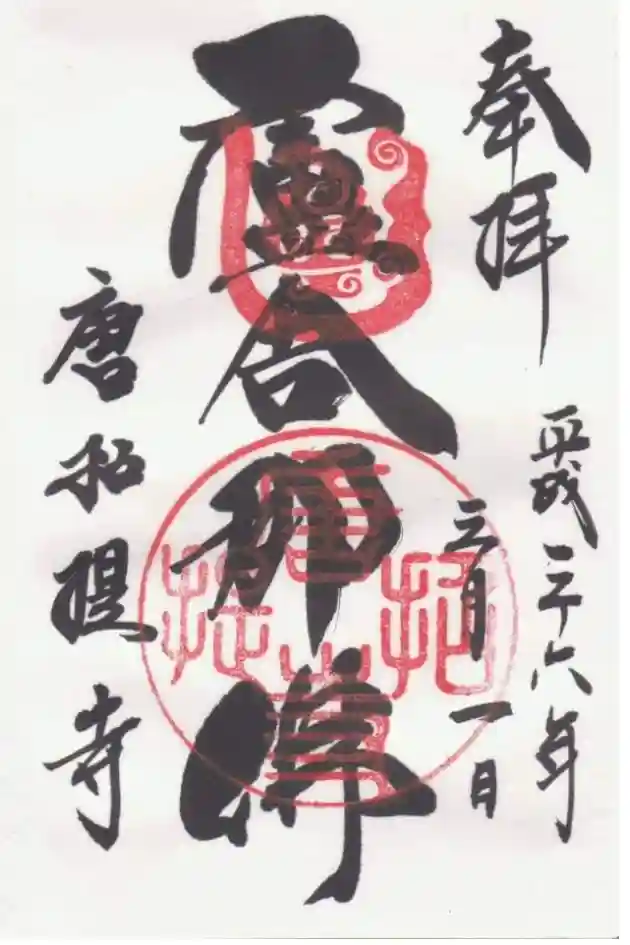 奉拝
平成二十六年
三月一日
盧舎那佛
唐招提寺